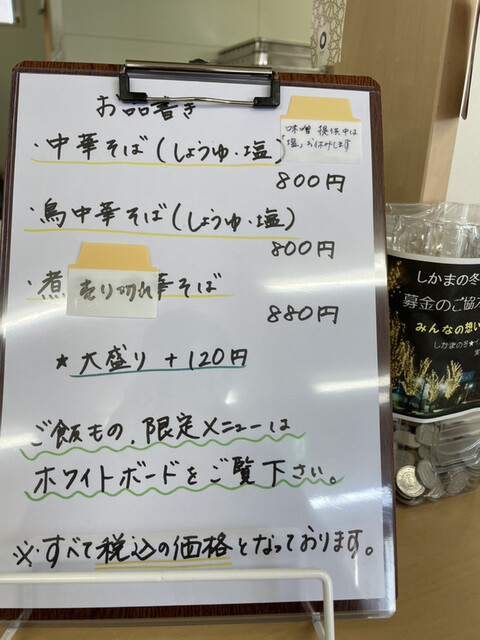 お品書き
・中華そば(しょうゆ・塩)
味噌 提供中は
「塩」お休みします
800円
・鳥中華そば(しょうゆ・塩)
800円
・煮 売り切れ 華そば
880円
★大盛り+120円
ご飯もの、限定メニューは
ホワイトボードをご覧下さい。
※・すべて税込の価格となっております。
しかまの冬
募金のご協
みんなの想い
しかまの冬★イ